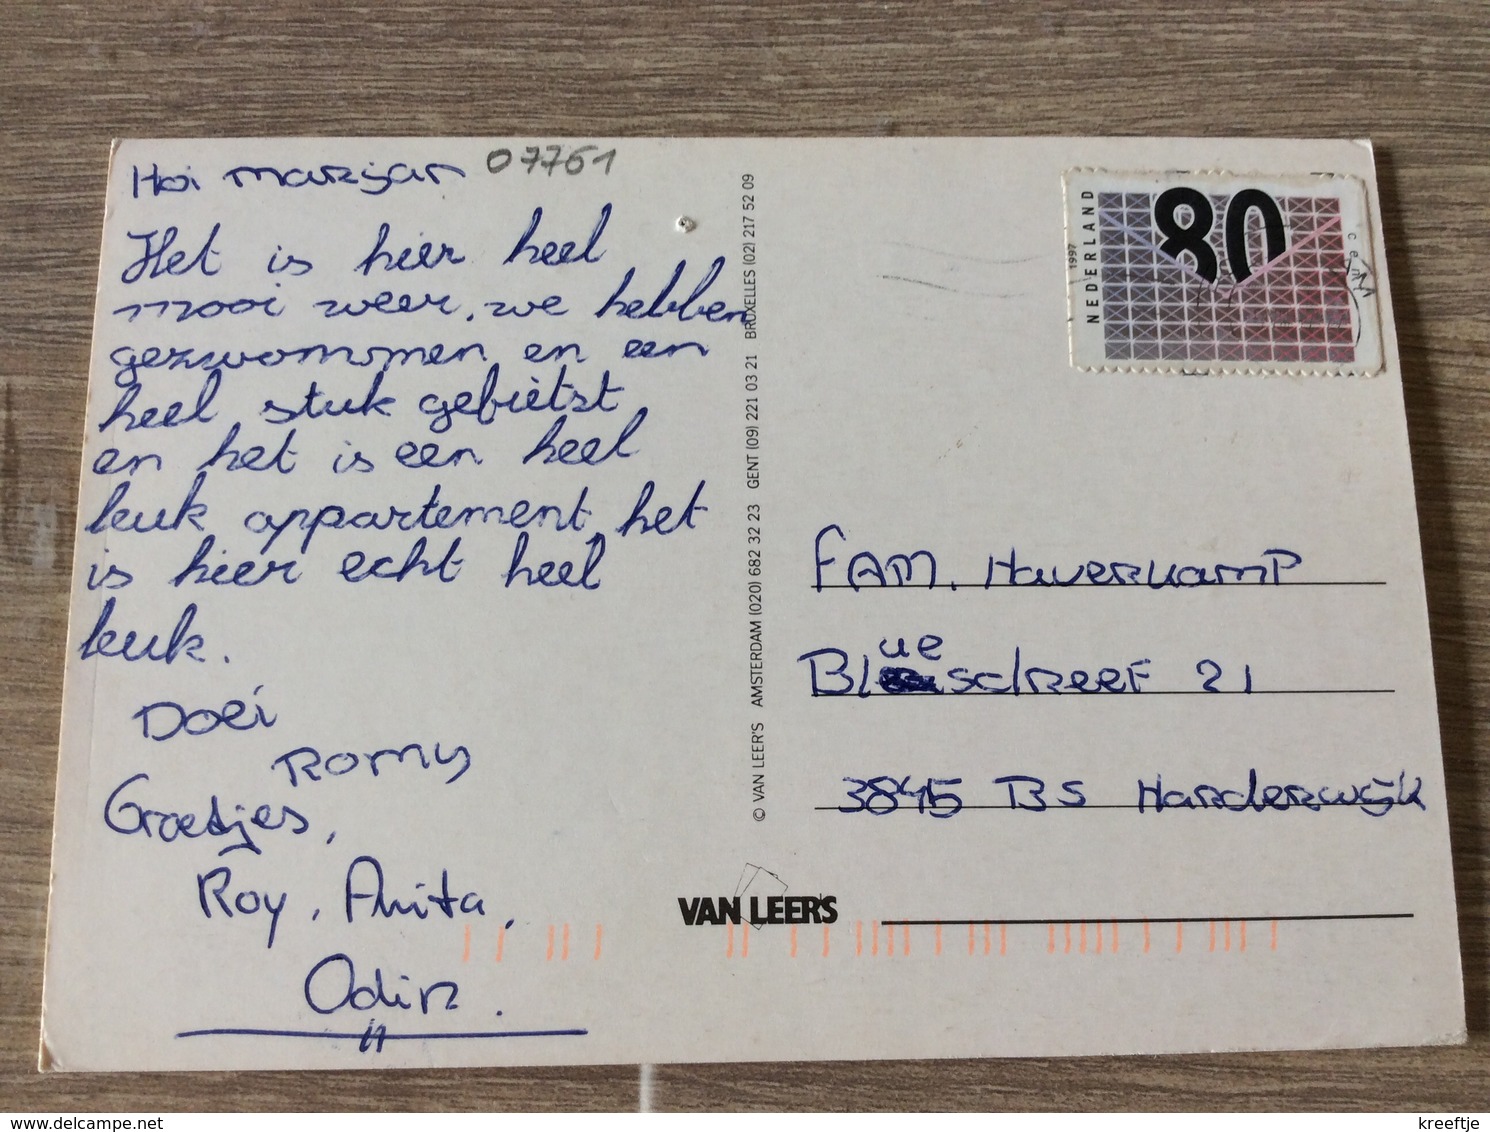 Hoi marijan 07761
Het is hier heel
mooi weer. we hebben
gezwommen en een
heel stuk gefietst
en het is een heel
leuk appartement het
is hier echt heel
leuk.
Doei
Romy
Groetjes,
Roy, Anita,
Odin.
© VAN LEER'S AMSTERDAM (020) 682 32 23 GENT (09) 221 03 21 BRUXELLES (02) 217 52 09
VAN LEER'S
NEDERLAND
1997
80
cent
FAM. Haverkamp
ue
Bl schreef 21
3845 BS Harderwijk
delcampe.net
kreeftje